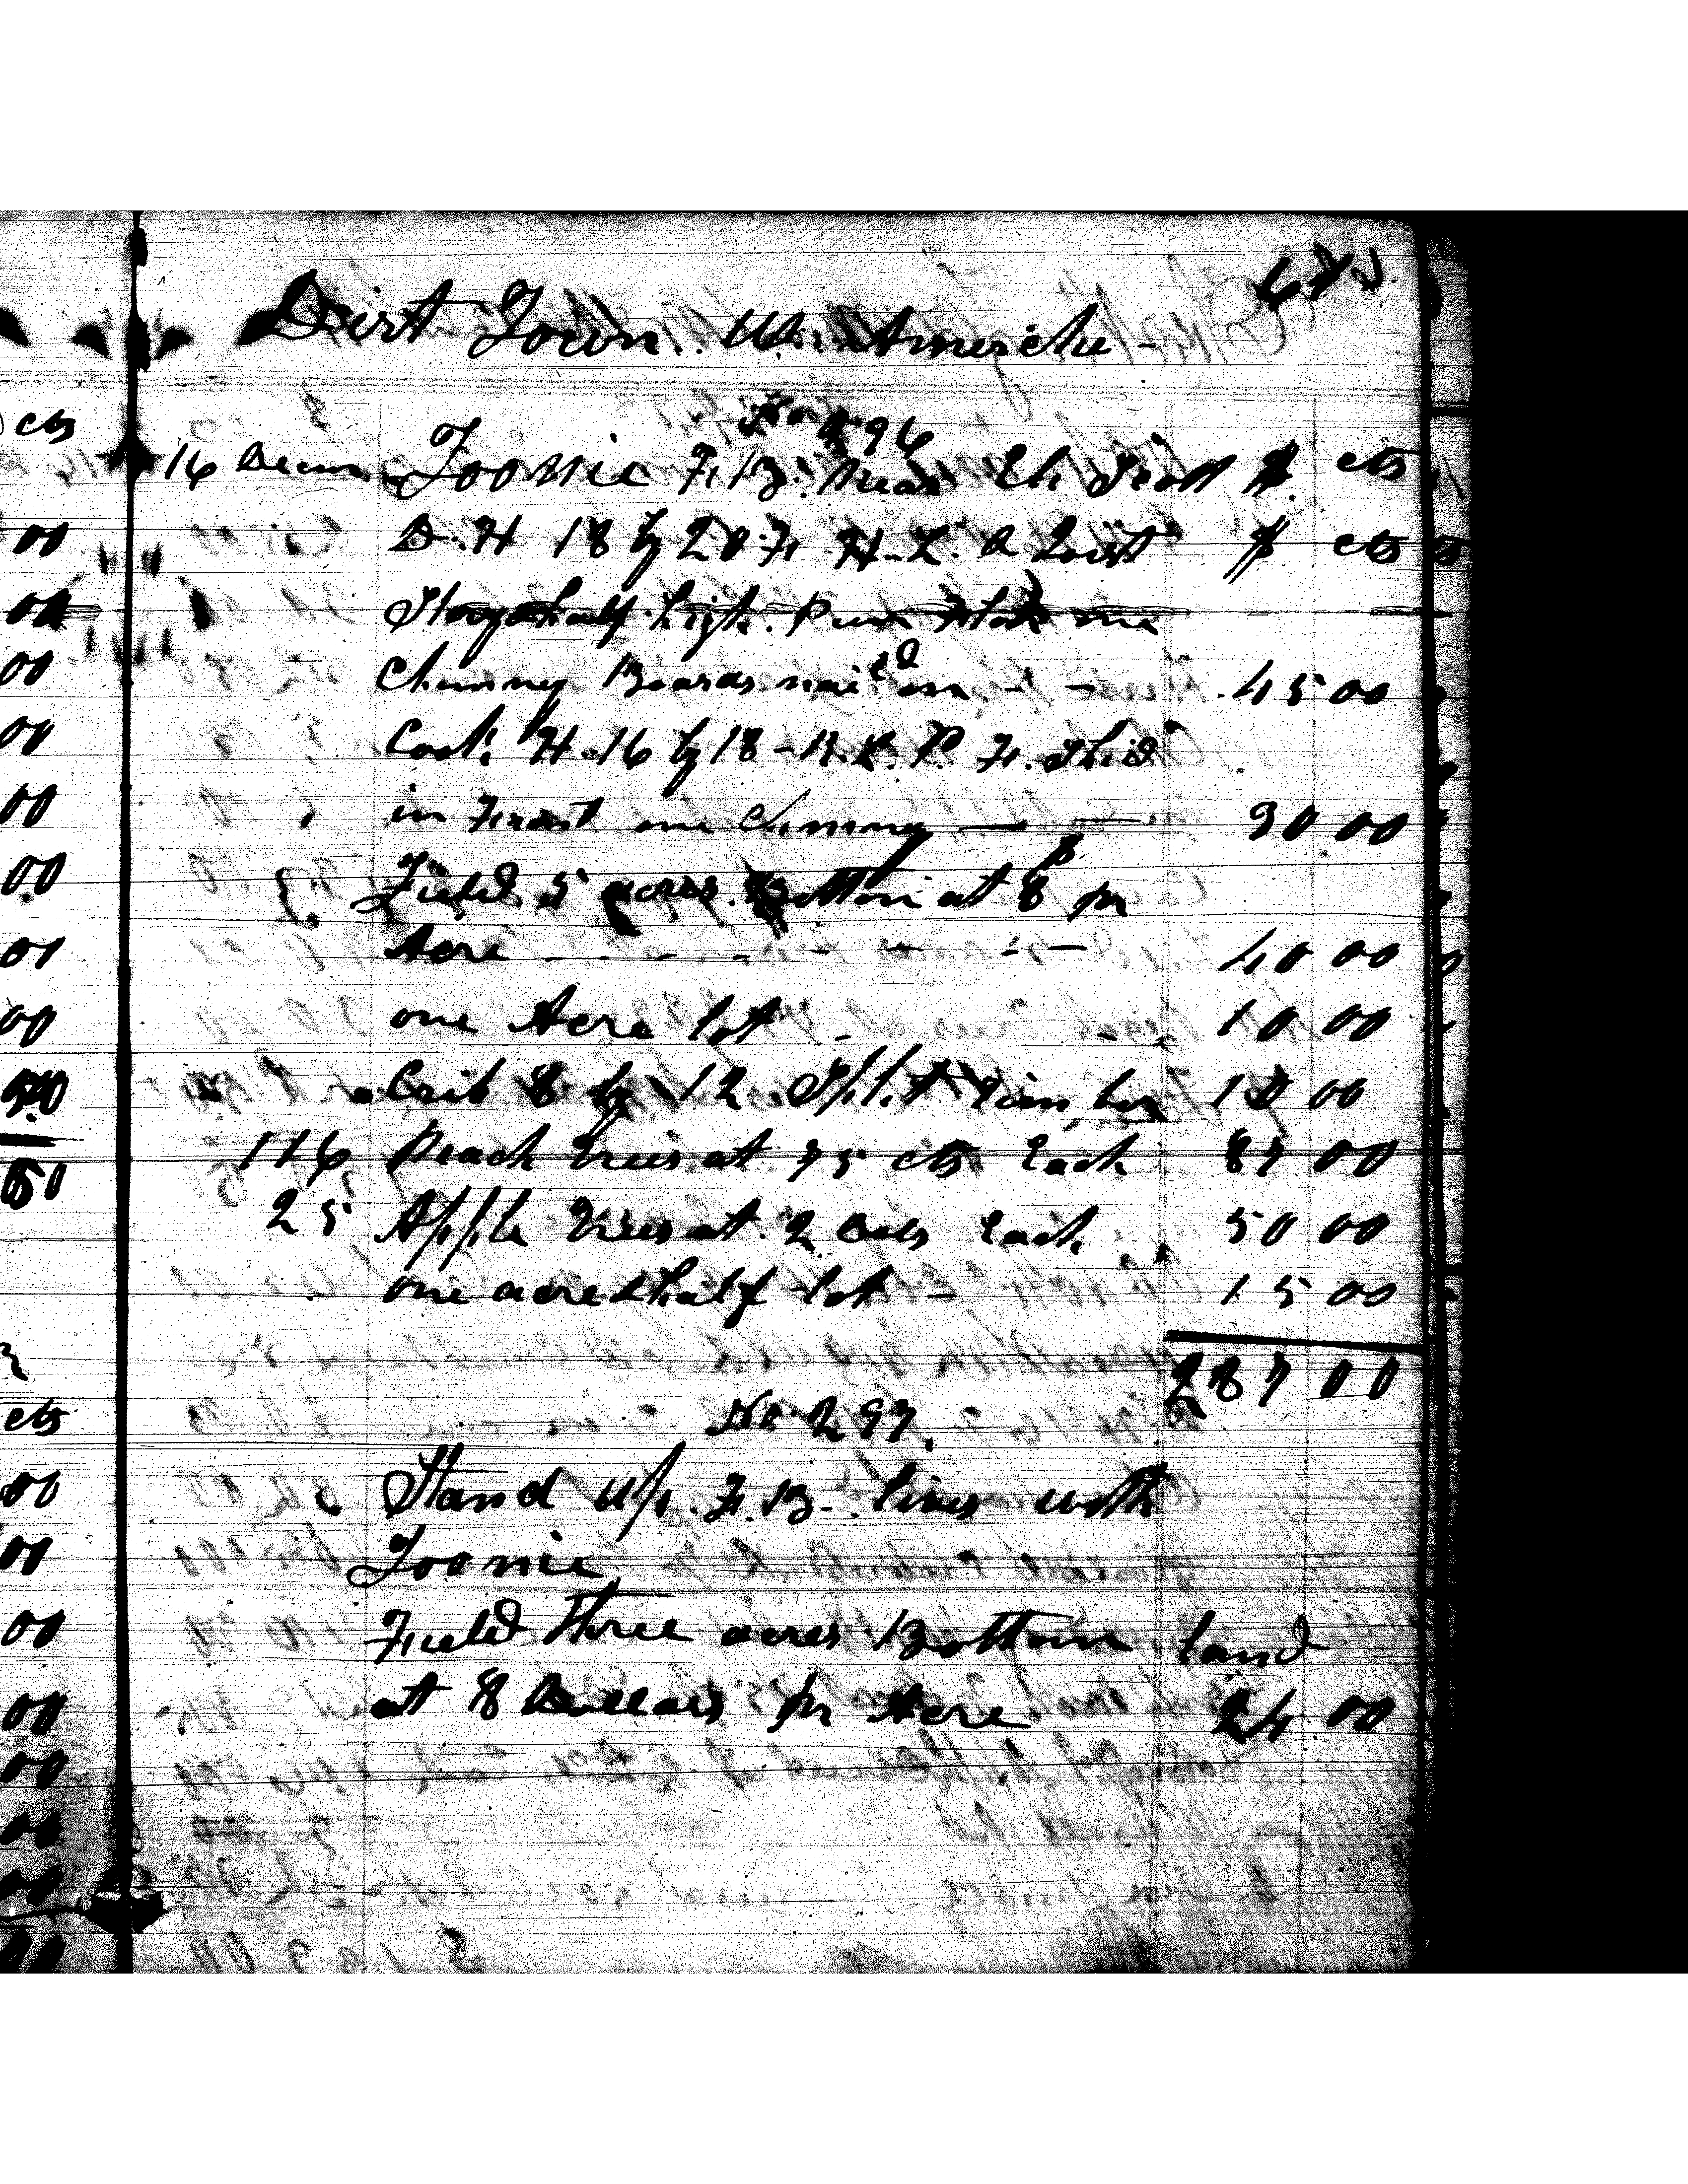 Dirt Town. W. Amerche
No 296
16 Decem Toonie F. B. near Ch. Scott $ cts
D. H 18 by 20 Ft H. L. a Loft $ cts
Story & half high. Pun Flor one
Chimney Boards naied on - - 45 00
Cook H. 16 by 18 - H. L. P. F. Shid
in Front one Chimney — — 30 00
Field 5 acres Bottom at 8 $ pr
Acre - - - - - - - 40 00
one Acre lot - - 10 00
Crib 8 by 12 Split Timber 10 00
116 Peach trees at 75 cts Each 87 00
25 Apple trees at 2 Dols Each 50 00
one acre & half lot - 15 00
287 00
No 297.
Stand Up. F. B. lives with
Toonie
Field three acres Bottom land
at 8 Dollars pr Acre 24 00
cts
00
00
00
00
00
00
00
00
50
cts
00
00
00
00
00